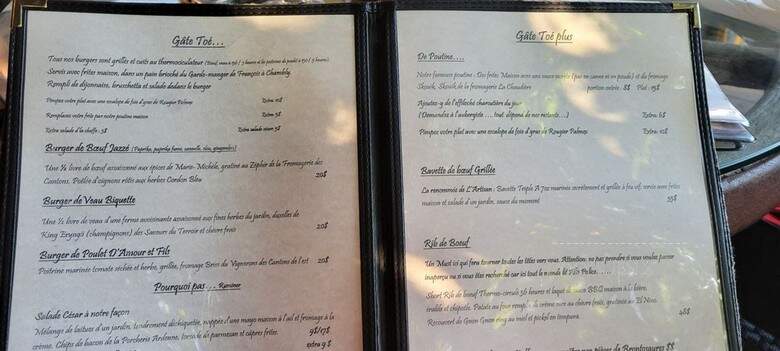 Gâte Toé...
Tous nos burgers sont grillés et cuits au thermocirculateur
Servis avec frites maison, dans un pain brioché du Garde-manger de François à Chambly.
Rempli de dijonnaise, bruschetta et salade dedans le burger
Pimpez votre plat avec une escalope de foie d'gras de Rougier Palmex Extra 12$
Remplacez votre frite par notre poutine maison Extra 5$
Extra salade à la cheffe : 3$ Extra salade césar 5$
Burger de Bœuf Jazzé
Une ½ livre de bœuf assaisonné aux épices de Marie-Michèle, gratiné au Zéphyr de la Fromagerie des
Cantons. Poêlée d'oignons rôtis aux herbes Cordon Bleu 20$
Burger de Veau Biquette
Une ½ livre de veau d'une ferme avoisinante assaisonné aux fines herbes du jardin, duxelles de
King Eryngii (champignons) des Saveurs du Terroir et chèvre frais 20$
Burger de Poulet D'Amour et Fils
Poitrine marinée tomate séchée et herbe, grillée, fromage Bries du Vignerons des Cantons de l'est 20$
Pourquoi pas... Ruminer
Salade César à notre façon
Mélange de laitues d'un jardin, tendrement déchiquetée, nappée d'une mayo maison à l'ail et fromage à la
crème. Chips de bacon de la Porcherie Ardenne, torsade de parmesan et câpres frites. 9$/17$
extra 9 $
Gâte Toé plus
De Poutine....
Notre fameuse poutine : Des frites Maison avec une sauce secrète (pas en canne et en poudre) et du fromage
Skouik, Skouik de la fromagerie La Chaudière portion entrée : 8$ Plat : 15$
Ajoutez-y de l'effiloché charcutière du jour
(Demandez à l'aubergiste... tout dépend de nos restants...) Extra: 6$
Pimpez votre plat avec une escalope de foie d'gras de Rougier Palmex Extra: 12$
Bavette de bœuf Grillée
La renommée de L'Artisan : Bavette Triple A 7oz marinée secrètement et grillée à feu vif, servie avec frites
maison et salade d'un jardin, sauce du moment 33$
Rib de Bœuf
Un Must ici qui fera tourner toutes les têtes vers vous. Attention: ne pas prendre si vous voulez passer
inaperçu ou si vous êtes recherché car ici tout le monde
Short Rib de bœuf Thermo-circulé 36 heures et laqué de sauce BBQ maison à la bière,
érable et chipotle. Patate au four remplie de crème sure au chèvre frais, gratinée au El Nino.
Recouvert de Onion ring au miel et pickel en tempura. 48$
de Brontosaures $$